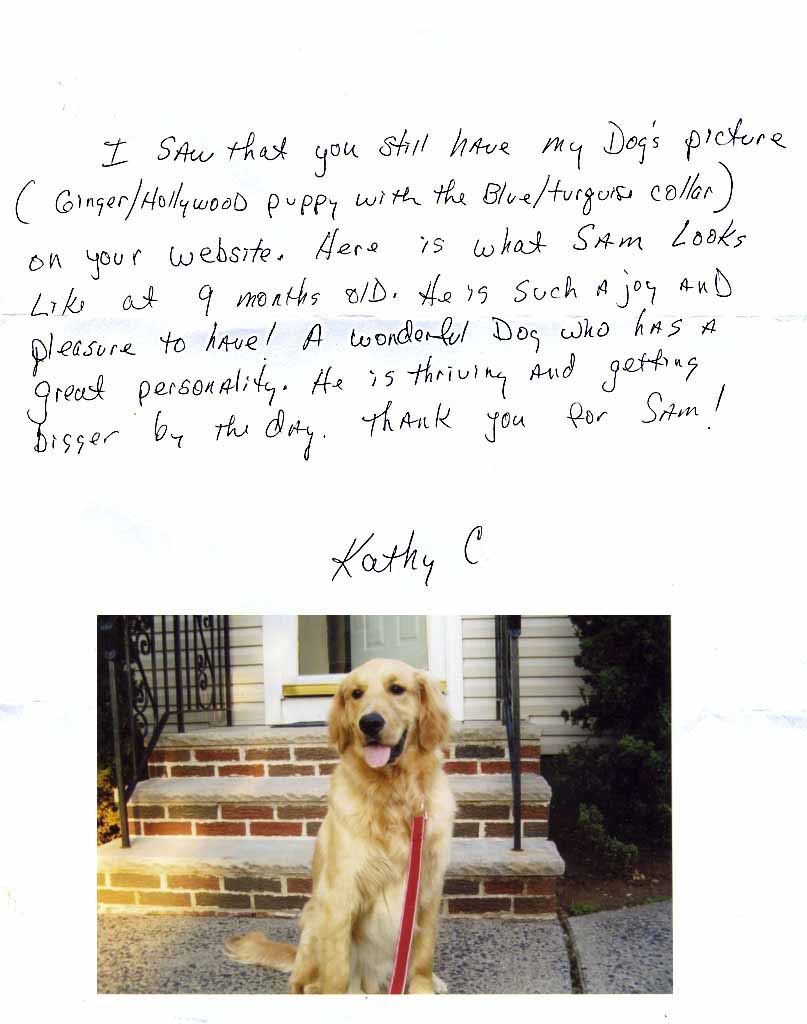 I SAW that you still have my Dog's picture
(Ginger/Hollywood puppy with the Blue/turquise collar)
on your website. Here is what SAM Looks
Like at 9 months old. He is such A joy AND
pleasure to have! A wonderful Dog who hAS A
great personality. He is thriving And getting
bigger by the day. Thank you for SAM!
Kathy C